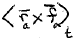 ⟨r̄ₐ × f̄ₐ⟩ₜ